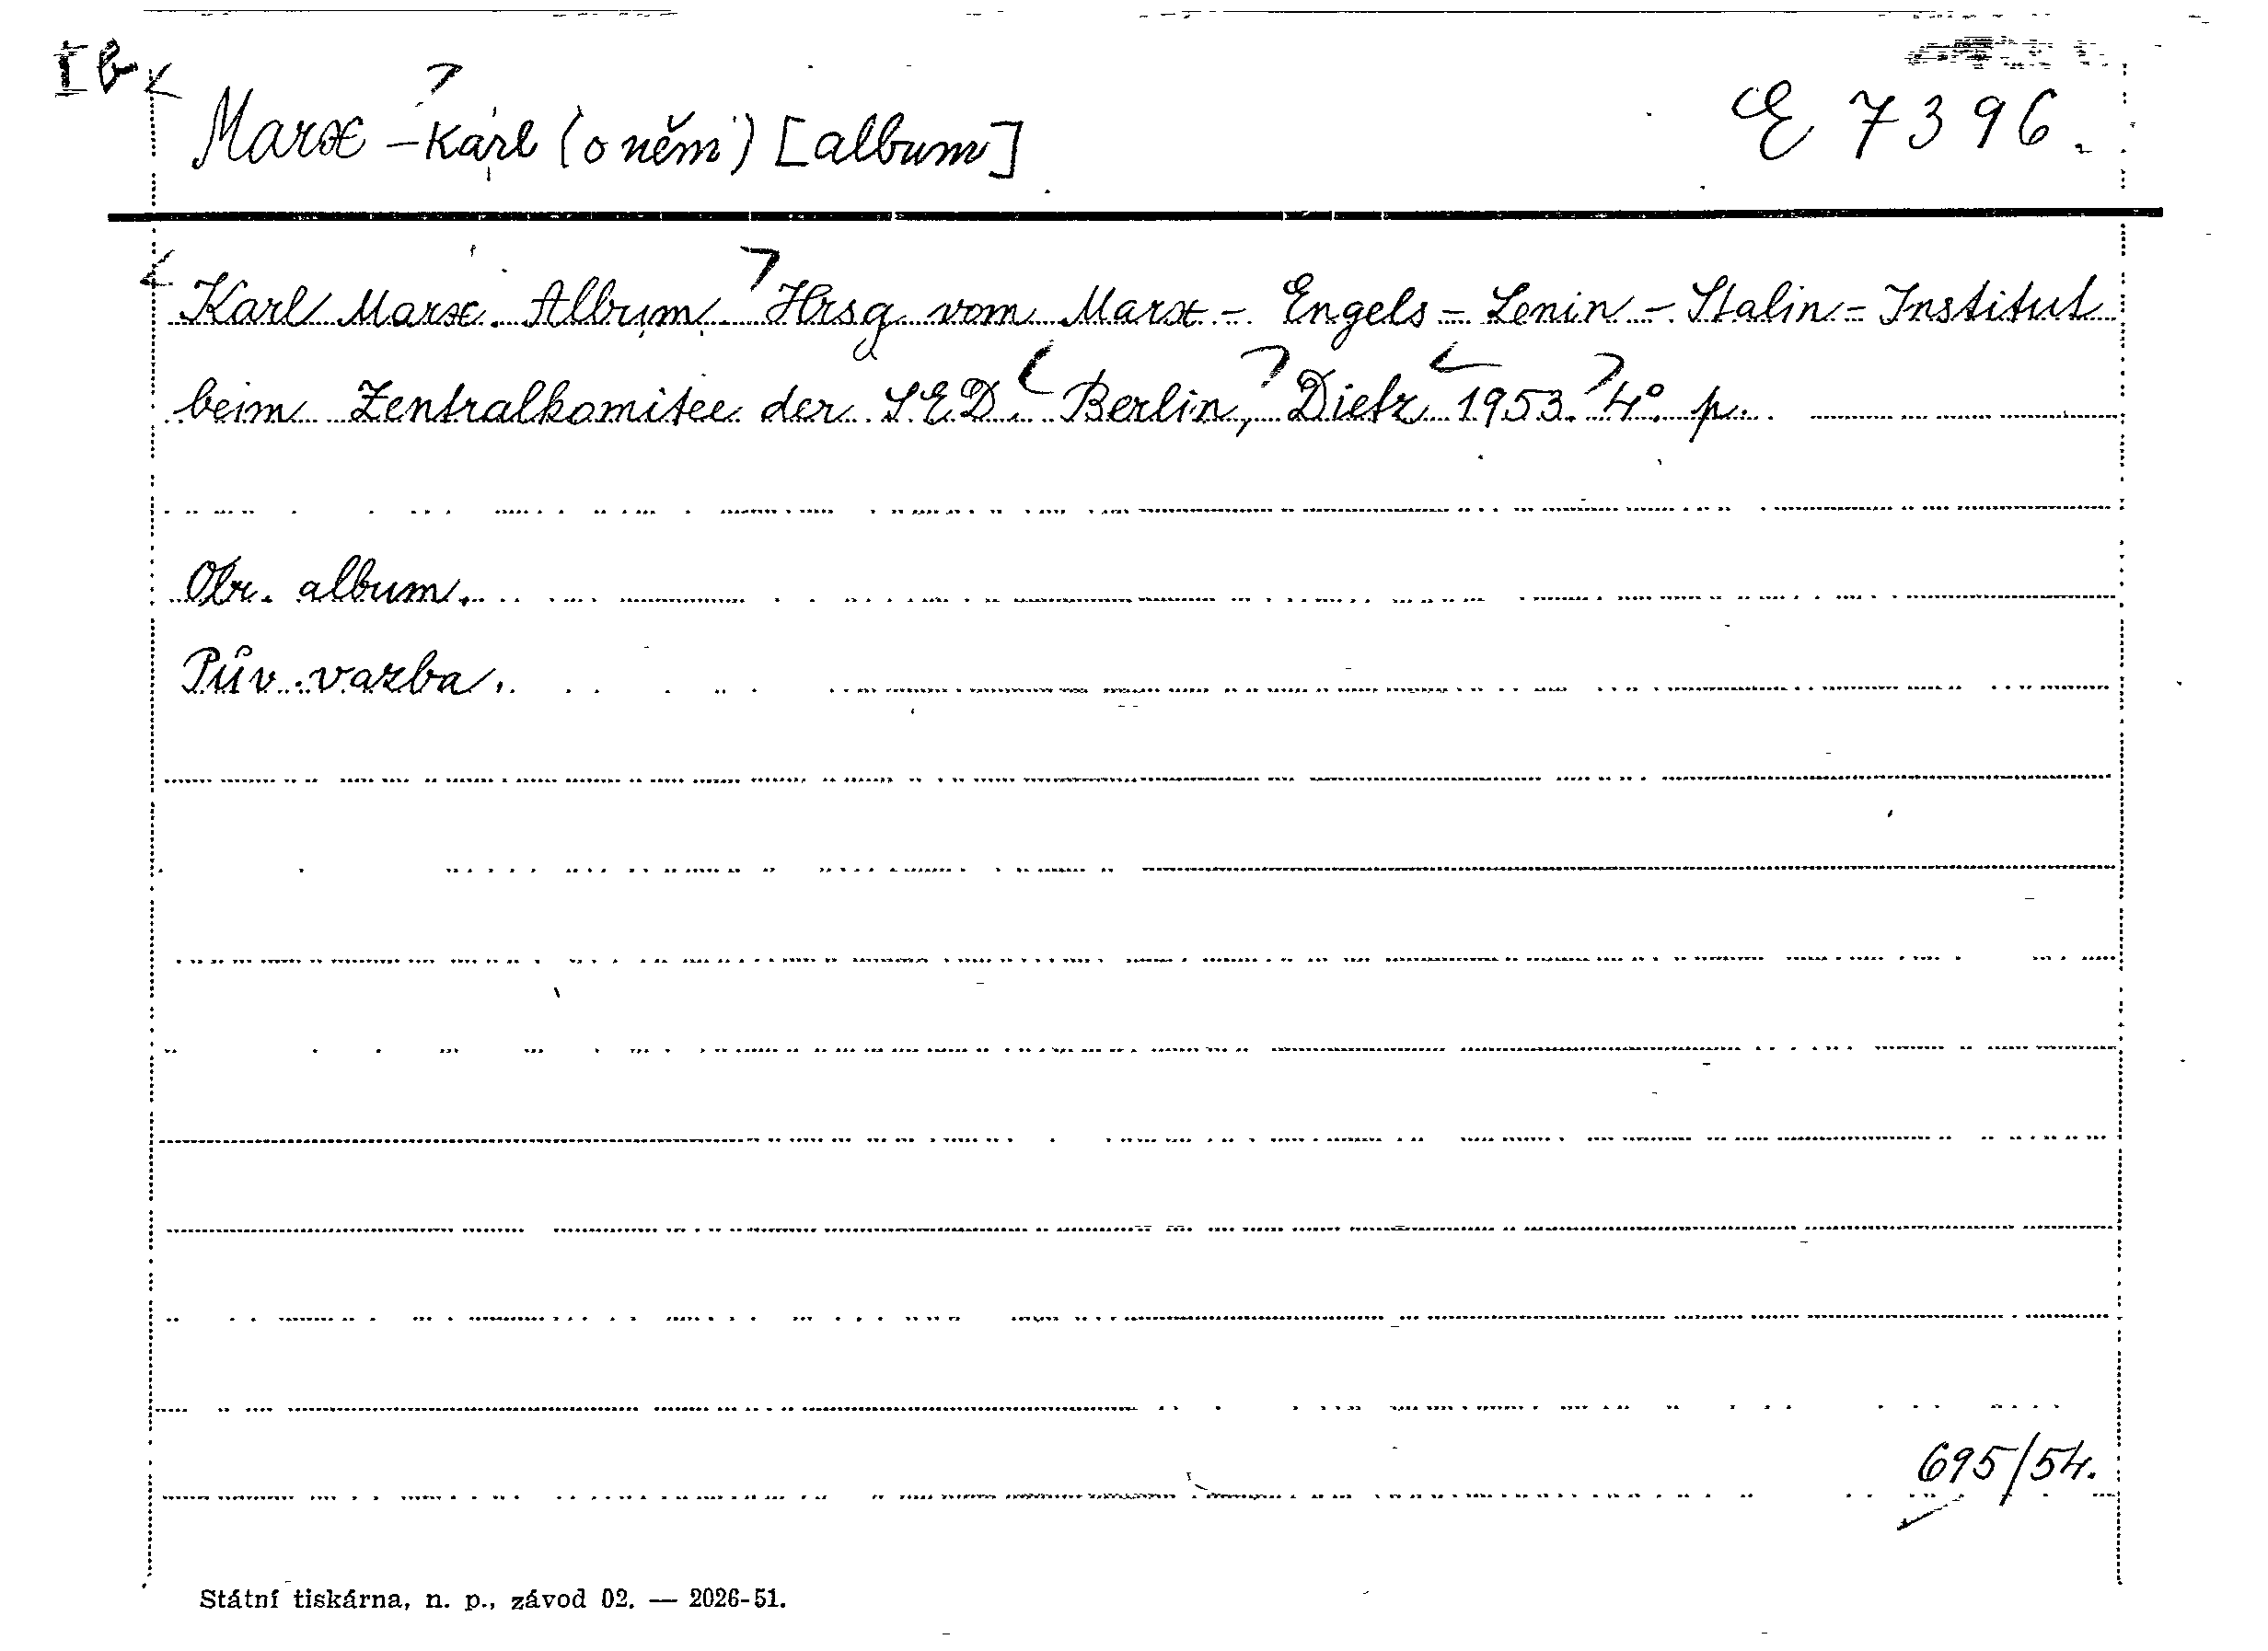 I b
Marx - Karl (o něm) [album] E 7396.
Karl Marx. Album. Hrsg vom Marx - Engels - Lenin - Stalin - Institut
beim Zentralkomitee der SED. Berlin, Dietz 1953. 4° p.
Obr. album.
Pův. vazba.
695/54.
Státní tiskárna, n. p., závod 02. — 2026-51.